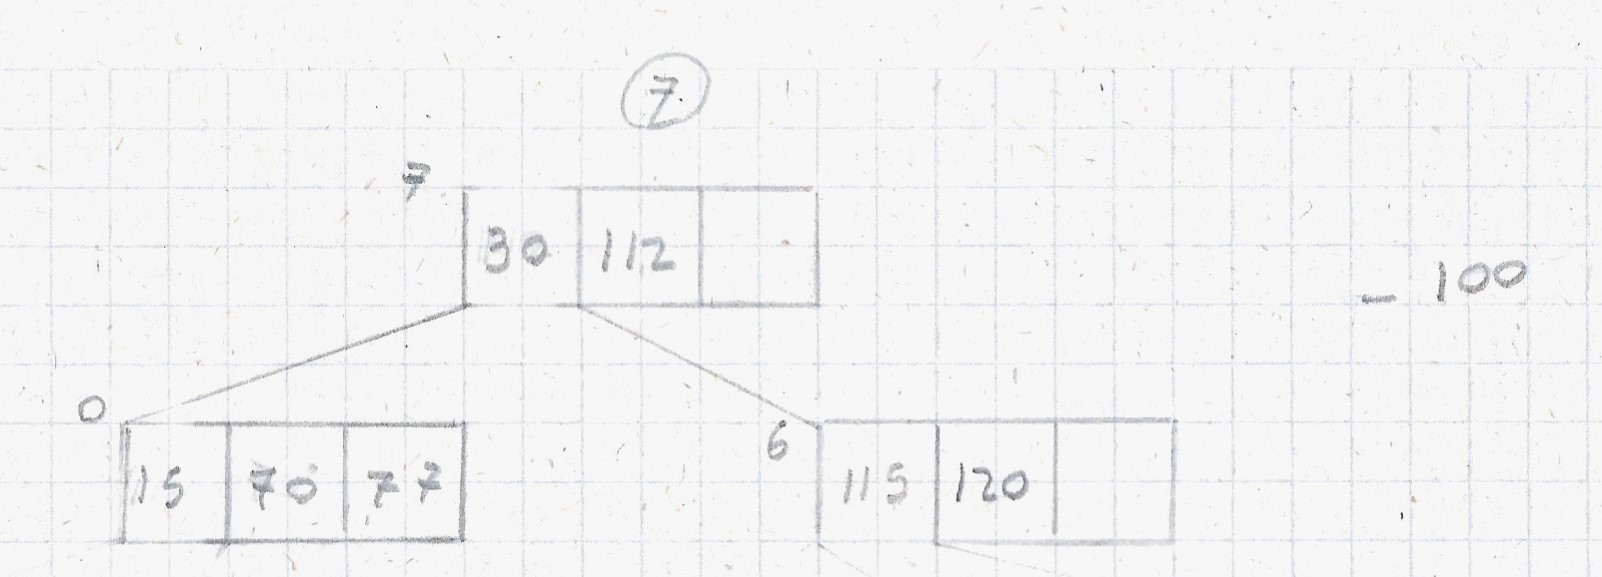 7
7
30 112
- 100
0
15 70 77
6
115 120